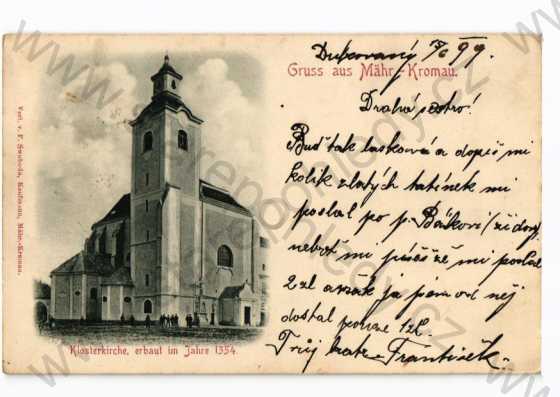 Dubcovaný 7/6 99
Gruss aus Mähr.-Kromau.
Drahá sestro!
Buď tak laskavá a dopiš mi
kolik zlatých tatínek mi
poslal po p.
neboť mi píšeš že mi poslal
2 zl a však já pám od něj
dostal pouze 1 zl.
Tvůj bratr František.
Klosterkirche, erbaut im Jahre 1354.
Verl. v. F. Swoboda, Kaufmann, Mähr.-Kromau.